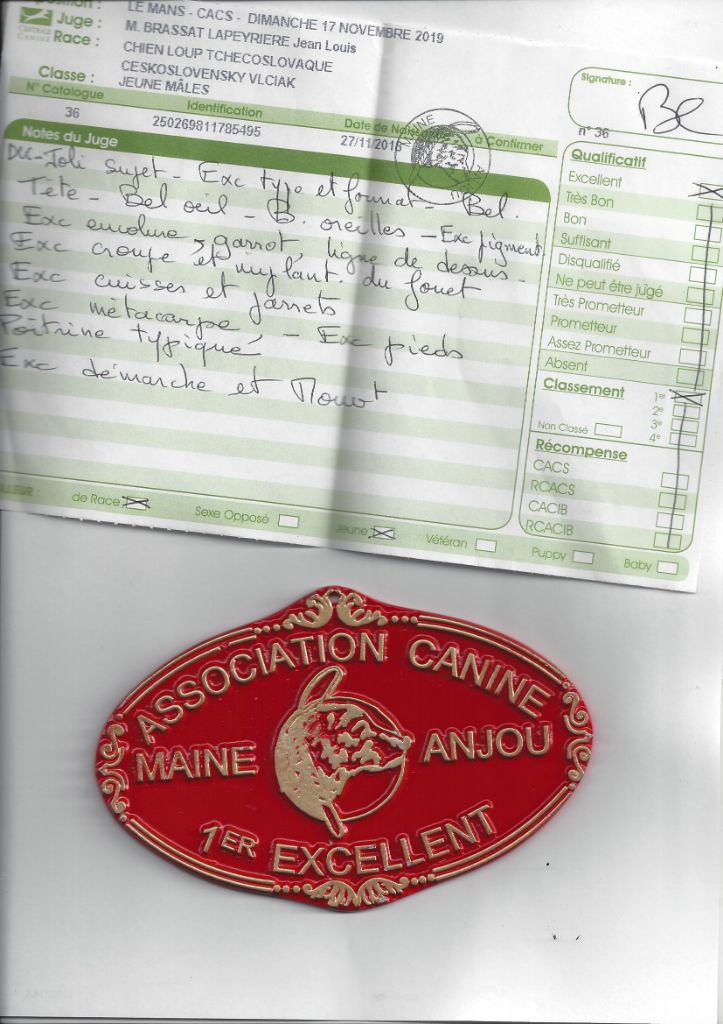 LE MANS - CACS - DIMANCHE 17 NOVEMBRE 2019
Juge : M. BRASSAT LAPEYRIERE Jean Louis
Race : CHIEN LOUP TCHECOSLOVAQUE
CENTRALE CANINE
CESKOSLOVENSKY VLCIAK
Classe : JEUNE MÂLES
N° Catalogue Identification Date de à Confirmer
36 250269811785495 27/11/2018
Notes du Juge
Joli sujet - Exc type et format - Bel.
Tête - Bel oeil - B. oreilles - Exc pigment.
Exc encolure, garrot, ligne de dessus -
Exc croupe et implant. du fouet
Exc cuisses et jarrets
Exc métacarpe - Exc pieds
Poitrine typique
Exc démarche et Mouvt
de Race
Sexe Opposé
Jeune
Vétéran
Puppy
Baby
Signature :
n° 36
Qualificatif
Excellent
Très Bon
Bon
Suffisant
Disqualifié
Ne peut être jugé
Très Prometteur
Prometteur
Assez Prometteur
Absent
Classement
1er
2e
3e
Non Classé 4e
Récompense
CACS
RCACS
CACIB
RCACIB
ASSOCIATION CANINE
MAINE ANJOU
1ER EXCELLENT